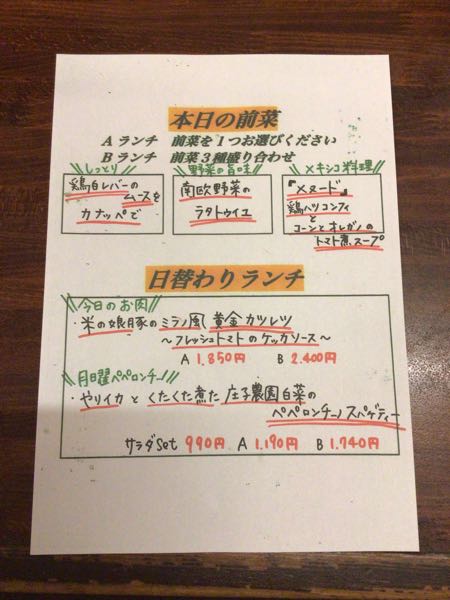 本日の前菜
A ランチ 前菜を1つお選びください
B ランチ 前菜3種盛り合わせ
しっとり
鶏白レバーの
ムースを
カナッペで
野菜の旨味
南欧野菜の
ラタトゥイユ
メキシコ料理
『メヌード』
鶏ハツコンフィ
と
コーンとオレガノの
トマト煮スープ
日替わりランチ
今日のお肉
・米の娘豚のミラノ風 黄金カツレツ
〜フレッシュトマトのケッカソース〜
A 1.850円 B 2.400円
月曜ペペロンチーノ
・やりイカとくたくた煮た 庄子農園白菜の
ペペロンチーノスパゲティー
サラダset 990円 A 1.190円 B 1.740円